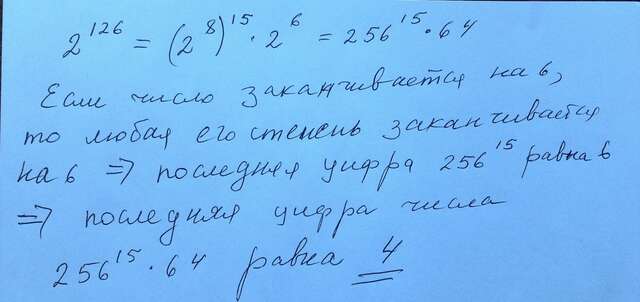 2¹²⁶ = (2⁸)¹⁵ · 2⁶ = 256¹⁵ · 64
Если число заканчивается на 6,
то любая его степень заканчивается
на 6 ⇒ последняя цифра 256¹⁵ равна 6
⇒ последняя цифра числа
256¹⁵ · 64 равна 4